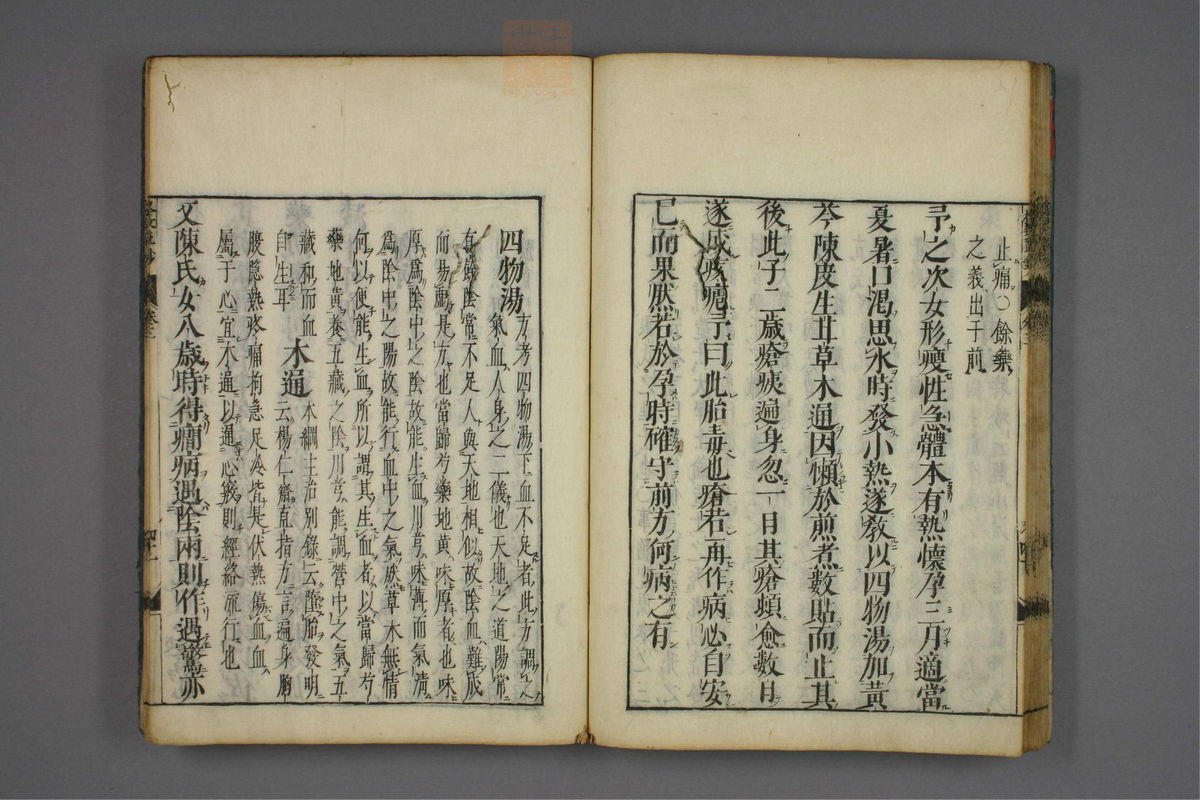 止痛○餘藥
之義出于前
予之次女形瘦性急體本有熱懷孕三月適當
夏暑口渴思水時發小熱遂教以四物湯加黃
芩陳皮生甘草木通因懶於煎煮數貼而止其
後此子二歲瘡痍遍身忽一日其瘡頓愈數日
遂成痎瘧予曰此胎毒也瘡若再作病必自安
已而果然若於孕時確守前方何病之有
四物湯 方考四物湯下血不足者此方調
氣血人身之二儀也天地之道陽常
有餘陰常不足人與天地相似故陰血難成
而易虧是方也當歸芍藥地黃味厚者也味
厚爲陰中之陰故能生血川芎味薄而氣清
爲陰中之陽故能行血中之氣然草木無情
何以便能生血所以謂其生血者以當歸芍
藥地黃養五藏之陰川芎能調營中之氣五
藏和而血
自生耳 木通 本綱主治別錄云墮胎發明
云楊仁齋直指方言遍身胸
腹隱熱疼痛拘急足冷皆是伏熱傷血血
屬于心宜木通以通心竅則經絡流行也
又陳氏女八歲時得癇病遇陰雨則作遇驚亦